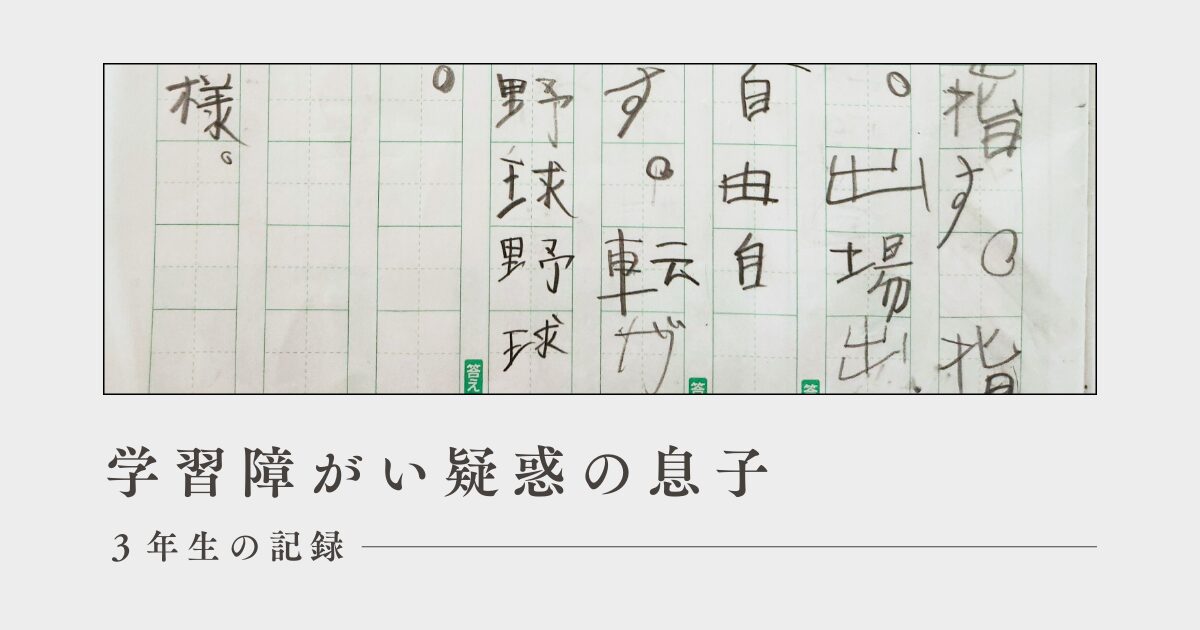 指す。指
。出場出
自由自
す。転が
野球野球
。
様。
答え
答
答
学習障がい疑惑の息子
3年生の記録